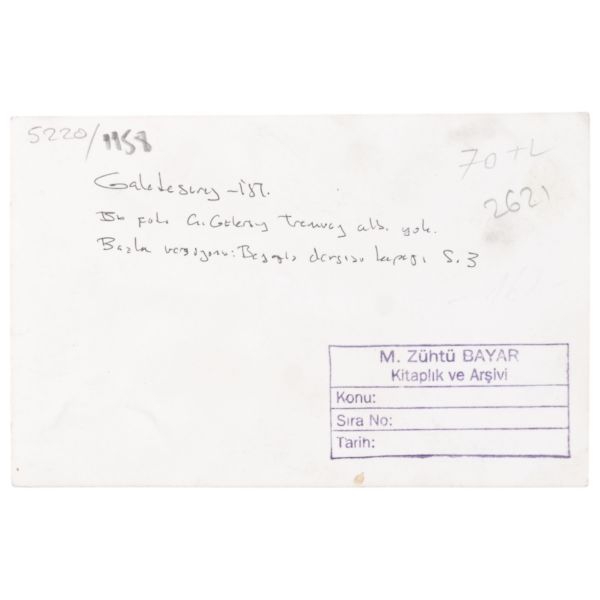 5220/1158
70 TL
2621
Galatasaray - İst.
Bu foto Ç. Gülersoy Tramvay alb. yok.
Başka versiyonu: Beyoğlu dergisi kapağı S. 3
M. Zühtü BAYAR
Kitaplık ve Arşivi
Konu:
Sıra No:
Tarih: